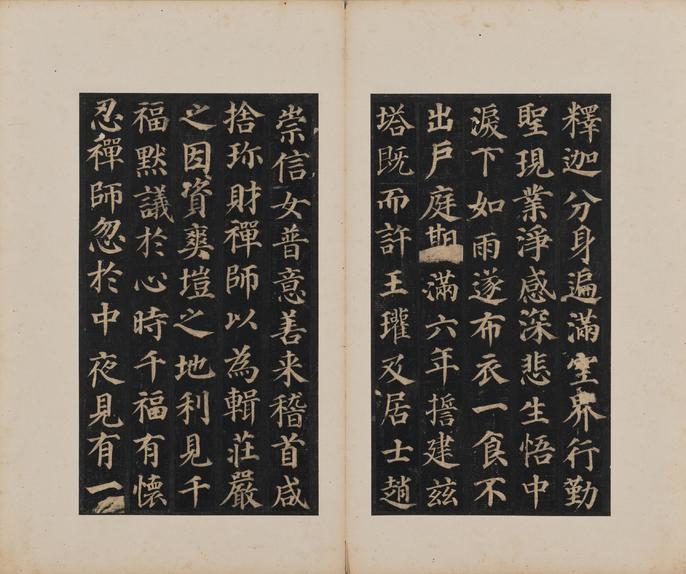 釋迦分身遍滿空界行勤
聖現業淨感深悲生悟中
淚下如雨遂布衣一食不
出戶庭期滿六年誓建茲
塔既而許王瓘及居士趙
崇信女普意善来稽首咸
捨珎財禪師以為輯莊嚴
之因資爽塏之地利見千
福默議於心時千福有懷
忍禪師忽於中夜見有一